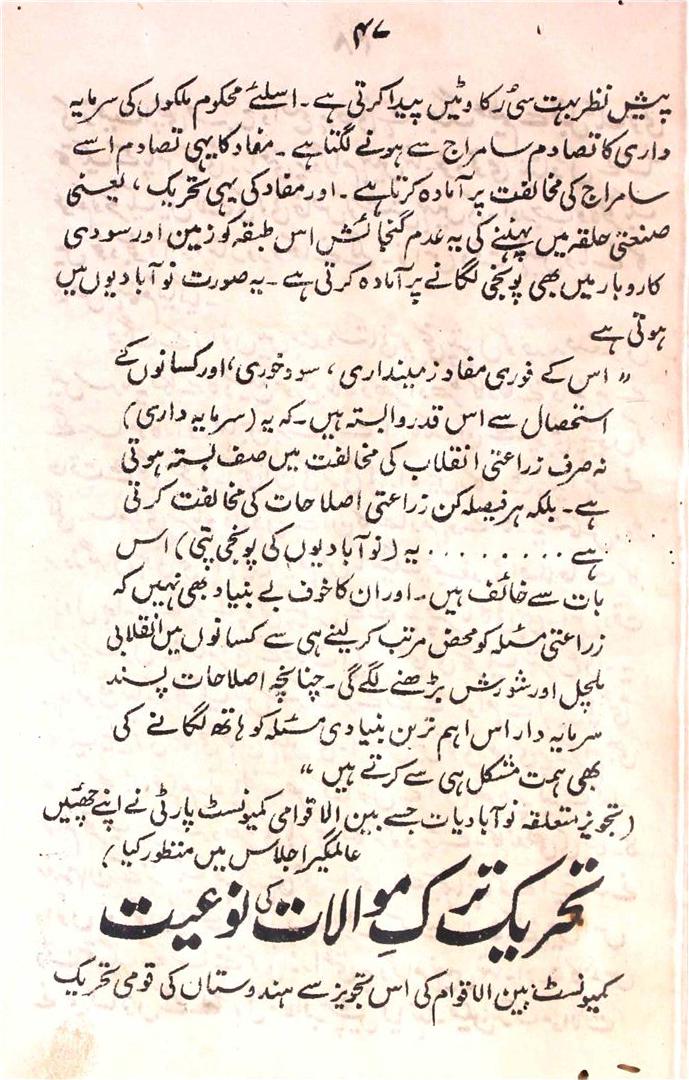 ۴۷
پیش نظر بہت سی رکاوٹیں پیدا کرتی ہے۔ اسلئے محکوم ملکوں کی سرمایہ
داری کا تصادم سامراج سے ہونے لگتا ہے۔ مفاد کا یہی تصادم اسے
سامراج کی مخالفت پر آمادہ کرتا ہے۔ اور مفاد کی یہی تحریک، یعنی
صنعتی حلقہ میں پہنپنے کی یہ عدم گنجائش اس طبقہ کو زمین اور سودی
کاروبار میں بھی پونجی لگانے پر آمادہ کرتی ہے۔ یہ صورت نو آبادیوں میں
ہوتی ہے
" اس کے فوری مفاد زمینداری، سود خوری، اور کسانوں کے
استحصال سے اس قدر وابستہ ہیں۔ کہ یہ (سرمایہ داری)
نہ صرف زراعتی انقلاب کی مخالفت میں صف بستہ ہوتی
ہے۔ بلکہ ہر فیصلہ کن زراعتی اصلاحات کی مخالفت کرتی
ہے ........ یہ (نو آبادیوں کی پونجی پتی) اس
بات سے خائف ہیں۔ اور ان کا خوف بے بنیاد بھی نہیں کہ
زراعتی مسئلہ کو محض مرتب کر لینے ہی سے کسانوں میں انقلابی
ہلچل اور شورش بڑھنے لگے گی۔ چنانچہ اصلاحات پسند
سرمایہ دار اس اہم ترین بنیادی مسئلہ کو ہاتھ لگانے کی
بھی ہمت مشکل ہی سے کرتے ہیں "
(تجویز متعلقہ نو آبادیات جسے بین الاقوامی کمیونسٹ پارٹی نے اپنے چھٹیں
عالمگیر اجلاس میں منظور کیا)
تحریک ترکِ موالات کی نوعیت
کمیونسٹ بین الاقوام کی اس تجویز سے ہندوستان کی قومی تحریک